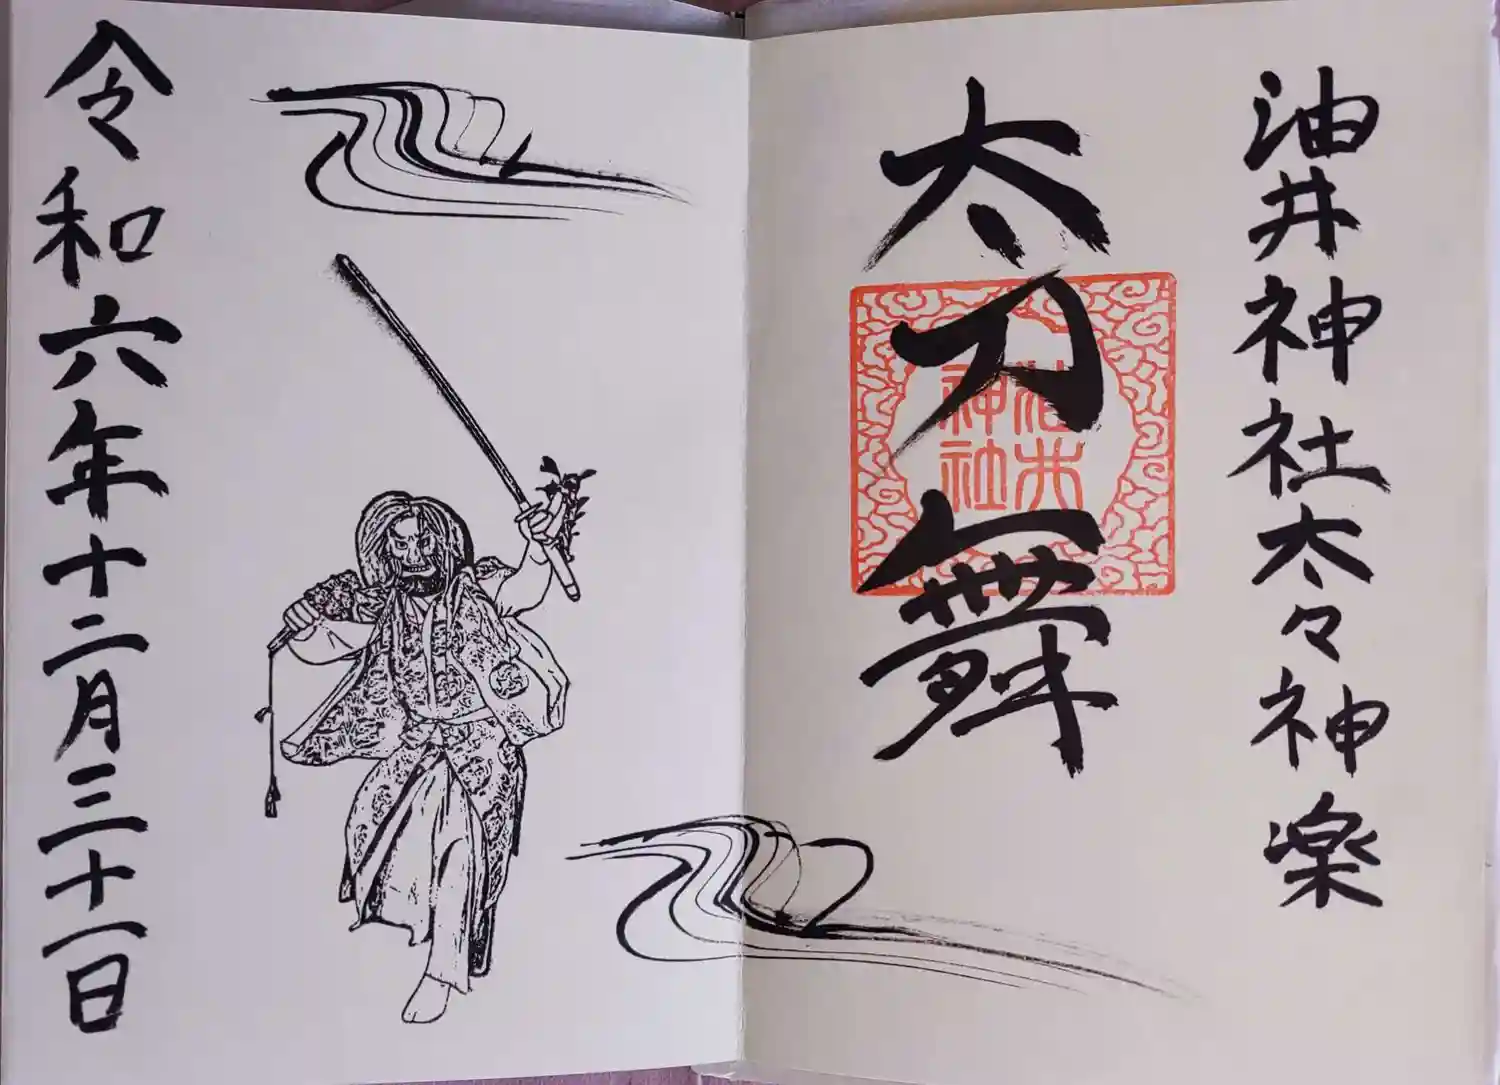 油井神社太々神楽
太刀舞
油井
神社
令和六年十二月三十一日